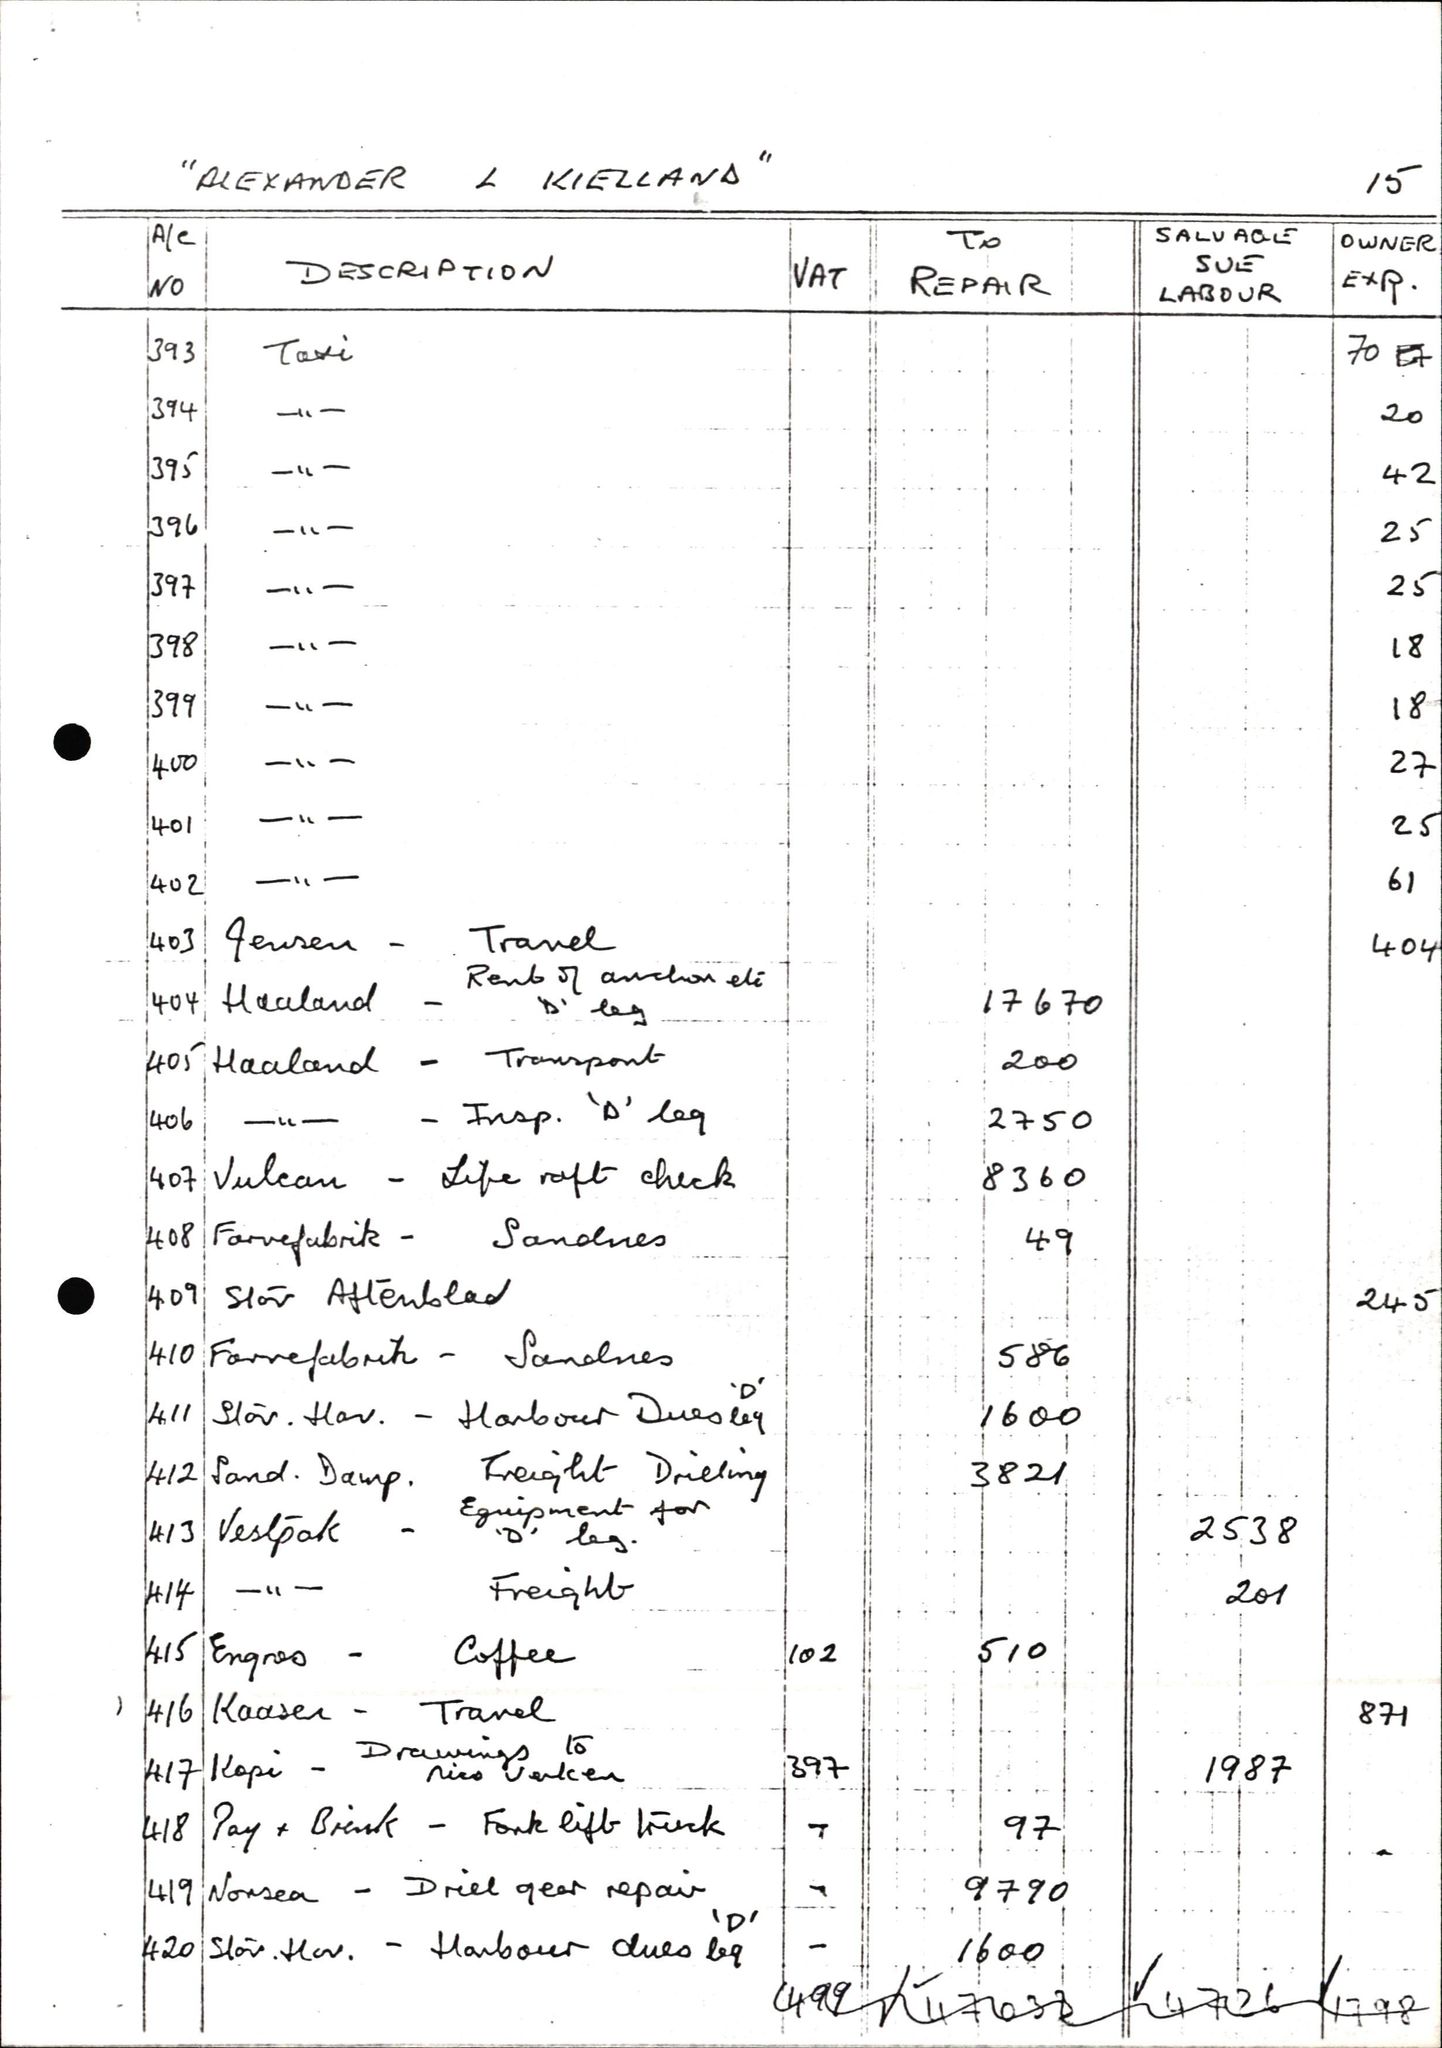 "ALEXANDER L KIELLAND" 15
A/C NO DESCRIPTION VAT TO REPAIR SALVAGE SUE LABOUR OWNER EXP.
393 Taxi 70
394 —"— 20
395 —"— 42
396 —"— 25
397 —"— 25
398 —"— 18
399 —"— 18
400 —"— 27
401 —"— 25
402 —"— 61
403 Jensen - Travel 404
404 Haaland - Rent of anchor etc 'D' leg 17670
405 Haaland - Transport 200
406 —"— - Insp. 'D' leg 2750
407 Vulcan - Life raft check 8360
408 Farvefabrik - Sandnes 49
409 Stav Aftenblad 245
410 Farvefabrik - Sandnes 586
411 Stav. Hav. - Harbour Dues 'D' leg 1600
412 Sand. Damp. Freight Drilling 3821
413 Vestpak - Equipment for 'D' leg. 2538
414 —"— Freight 201
415 Engros - Coffee 102 510
416 Kaasen - Travel 871
417 Kopi - Drawings to Nico Verken 397 1987
418 Pay + Brink - Fork lift truck - 97
419 Norsea - Drill gear repair - 9790
420 Stav. Hav. - Harbour dues 'D' leg - 1600
499 47033 4726 1798